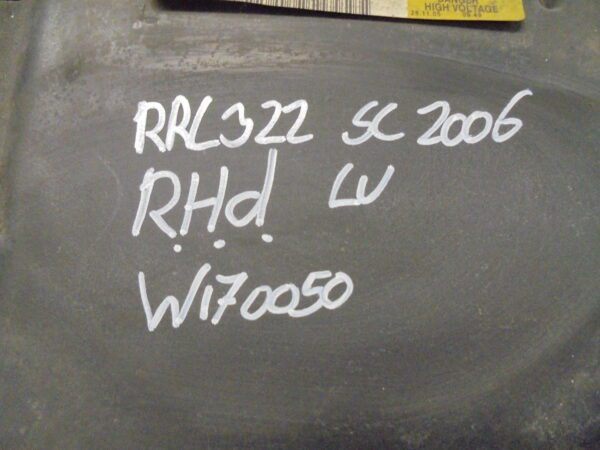 DANGER
HIGH VOLTAGE
RRL322 SC 2006
R.H.d. LV
W170050